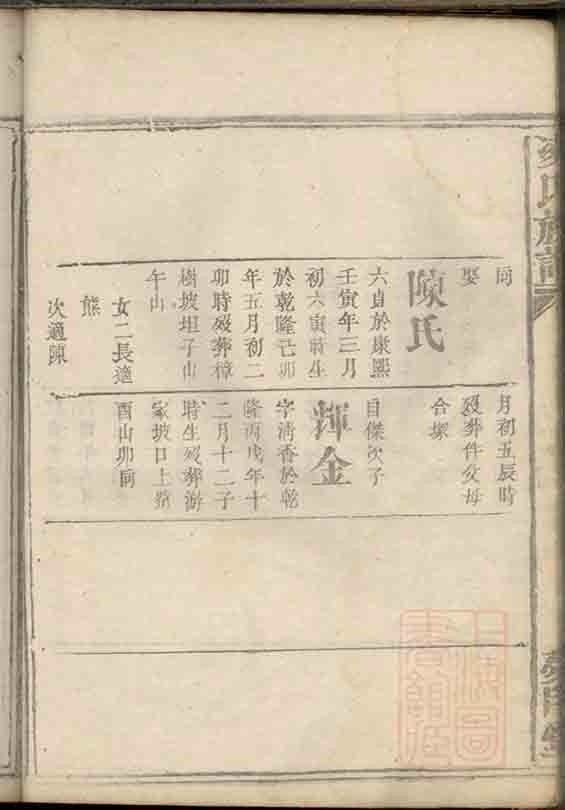 氏族譜
同
娶
陳氏
六貞於康熙
壬寅年三月
初六寅時生
於乾隆己卯
年五月初二
卯時歿葬樟
樹坡坦子山
午山
女二長適
熊
次適陳
月初五辰時
歿葬件父母
合塚
自傑次子
輝金
字清香於乾
隆丙戌年十
二月十二子
時生歿葬游
家坡口上
酉山卯向